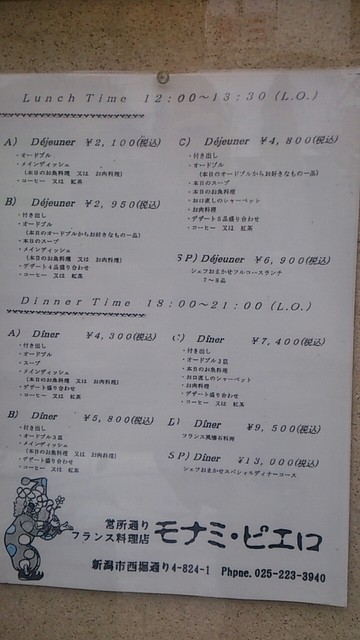 Lunch Time 12:00～13:30 (L.O.)
A) Déjeuner ￥2,100(税込)
・オードブル
・メインディッシュ
(本日のお魚料理 又は お肉料理)
・コーヒー 又は 紅茶
B) Déjeuner ￥2,950(税込)
・付き出し
・オードブル
(本日のオードブルからお好きなもの一品)
・本日のスープ
・メインディシュ
(本日のお魚料理 又は お肉料理)
・デザート4品盛り合わせ
・コーヒー 又は 紅茶
C) Déjeuner ￥4,800(税込)
・付き出し
・オードブル
(本日のオードブルからお好きなもの一品)
・本日のスープ
・本日のお魚料理
・お口直しのシャーベット
・お肉料理
・デザート5品盛り合わせ
・コーヒー 又は 紅茶
SP) Déjeuner ￥6,900(税込)
シェフおまかせフルコースランチ
7～8品
Dinner Time 18:00～21:00 (L.O.)
A) Dîner ￥4,300(税込)
・付き出し
・オードブル
・スープ
・メインディッシュ
(本日のお魚料理 又は お肉料理)
・デザート盛り合わせ
・コーヒー 又は 紅茶
B) Dîner ￥5,800(税込)
・付き出し
・オードブル3皿
・メインディッシュ
(本日のお魚料理 又は お肉料理)
・デザート盛り合わせ
・コーヒー 又は 紅茶
C) Dîner ￥7,400(税込)
・付き出し
・オードブル3皿
・本日のお魚料理
・お口直しのシャーベット
・お肉料理
・デザート盛り合わせ
・コーヒー 又は 紅茶
D) Dîner ￥9,500(税込)
フランス風懐石料理
SP) Dîner ￥13,000(税込)
シェフおまかせスペシャルディナーコース
営所通り
フランス料理店 モナミ・ピエロ
新潟市西堀通り4-824-1 Phpne.025-223-3940